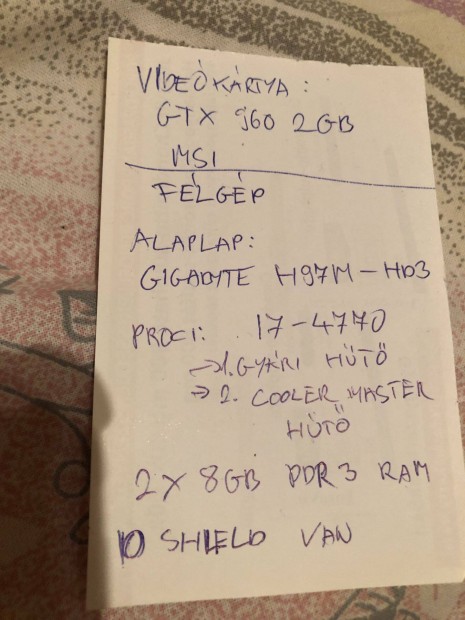 VIDEÓKÁRTYA:
GTX 960 2GB
MSI
FÉLGÉP
ALAPLAP:
GIGABYTE H97M-HD3
PROCI: I7-4770
→1. GYÁRI HŰTŐ
→ 2. COOLER MASTER
HŰTŐ
2X 8GB DDR3 RAM
IO SHIELD VAN